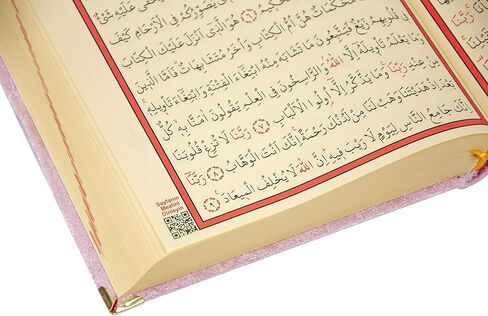 عَلَيْهِ شَيْءٌ
يُصَوِّرُكُمْ فِي الْاَرْحَامِ كَيْفَ
﴿٦﴾ هُوَ الَّذ۪ٓي اَنْزَلَ عَلَيْكَ الْكِتَابَ
مُحْكَمَاتٌ هُنَّ اُمُّ الْكِتَابِ وَاُخَرُ مُتَشَابِهَاتٌ فَاَمَّا الَّذ۪ينَ
ف۪ي قُلُوبِهِمْ زَيْغٌ فَيَتَّبِعُونَ مَا تَشَابَهَ مِنْهُ ابْتِغَٓاءَ الْفِتْنَةِ وَابْتِغَٓاءَ تَأْو۪يلِه۪
وَمَا يَعْلَمُ تَأْو۪يلَهُٓ اِلَّا اللّٰهُ وَالرَّاسِخُونَ فِي الْعِلْمِ يَقُولُونَ اٰمَنَّا بِه۪ كُلٌّ
مِنْ عِنْدِ رَبِّنَا وَمَا يَذَّكَّرُ اِلَّٓا اُو۬لُوا الْاَلْبَابِ ﴿٧﴾ رَبَّنَا لَا تُزِغْ قُلُوبَنَا
بَعْدَ اِذْ هَدَيْتَنَا وَهَبْ لَنَا مِنْ لَدُنْكَ رَحْمَةً اِنَّكَ اَنْتَ الْوَهَّابُ ﴿٨﴾ رَبَّنَٓا
اِنَّكَ جَامِعُ النَّاسِ لِيَوْمٍ لَا رَيْبَ ف۪يهِ اِنَّ اللّٰهَ لَا يُخْلِفُ الْم۪يعَادَ ﴿٩﴾
Sayfanın
Mealini
Dinleyin